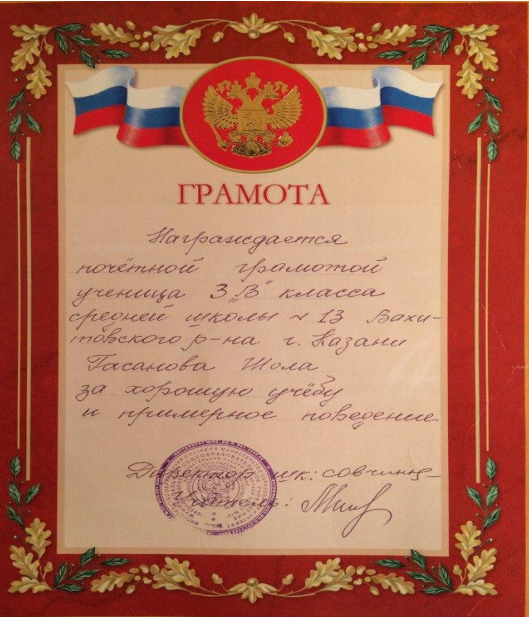 ГРАМОТА
Награждается
почётной грамотой
ученица 3 „В" класса
средней школы № 13 Вахи-
товского р-на г. Казани
Гасанова Шола
за хорошую учёбу
и примерное поведение.
Директор шк:
Учитель: